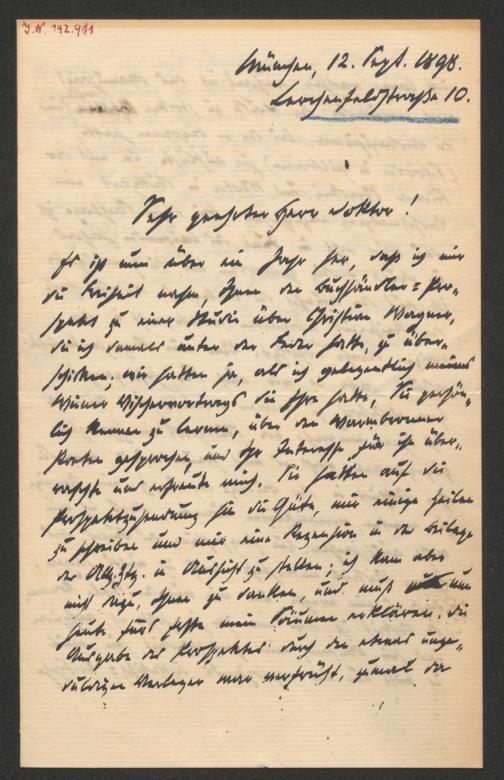 J.N. 142.911
München, 12. Sept. 1898.
Lerchenfeldstraße 10.
Sehr geehrter Herr Doktor!
Es ist nun über ein Jahr her, daß ich mir
die Freiheit nahm, Ihnen den Buchhändler=Pro-
spekt zu einer Studie über Christian Wagner,
die ich damals unter der Feder hatte, zu über-
schicken. Wir hatten ja, als ich gelegentlich meines
Wiener Vischervortrags die Ehre hatte, Sie persön-
lich kennen zu lernen, über den Warmbronner
Poeten gesprochen, und Ihr Interesse für ihn über-
raschte und erfreute mich. Sie hatten auf die
Prospektzusendung hin die Güte, mir einige Zeilen
zu schreiben und mir eine Rezension in der Beilage
der Allg. Ztg. in Aussicht zu stellen; ich kam aber
nicht dazu, Ihnen zu danken, und muß nun
heute fürs Erste mein Säumen erklären. Die
Ausgabe des Prospektes durch den etwas unge-
duldigen Verleger war verfrüht, zumal da